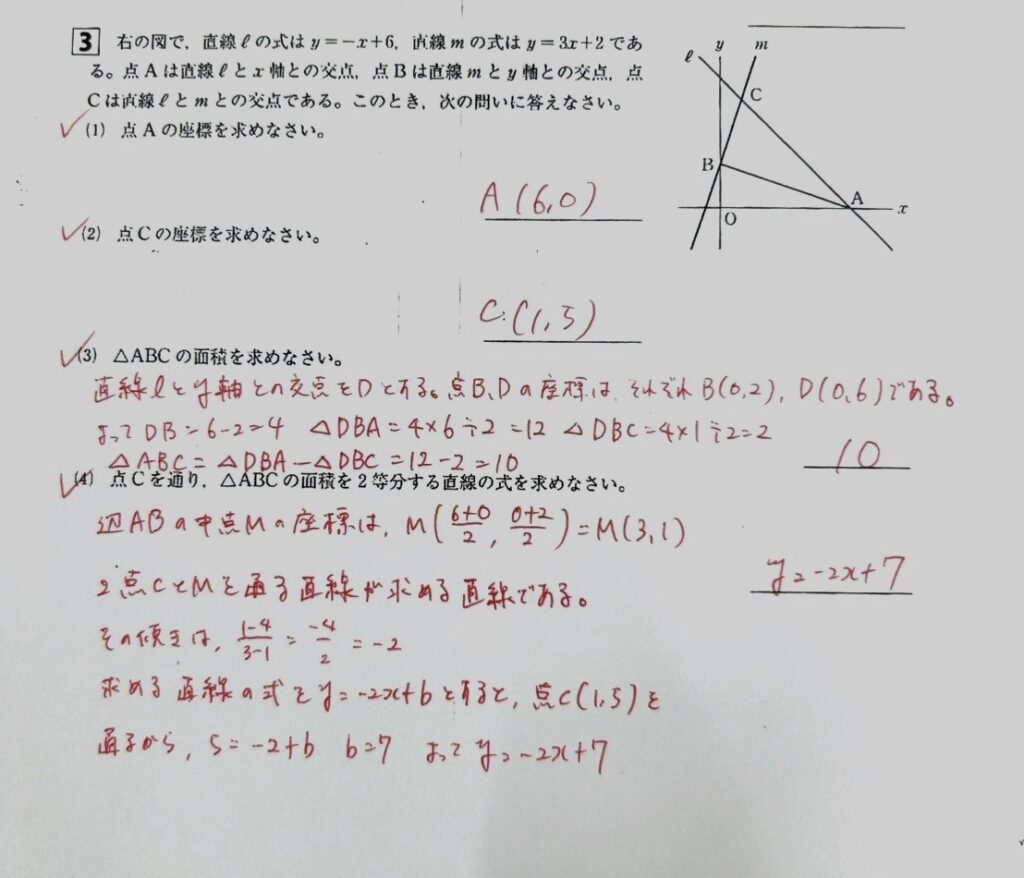 3 右の図で，直線ℓの式は y=-x+6，直線mの式は y=3x+2 であ
る。点Aは直線ℓとx軸との交点，点Bは直線mとy軸との交点，点
Cは直線ℓとmとの交点である。このとき，次の問いに答えなさい。
(1) 点Aの座標を求めなさい。
A(6,0)
(2) 点Cの座標を求めなさい。
C(1,5)
ℓ y m
C
B
A
O x
(3) △ABCの面積を求めなさい。
直線ℓとy軸との交点をDとする。点B,Dの座標は，それぞれB(0,2)，D(0,6)である。
よってDB=6-2=4 △DBA=4×6÷2=12 △DBC=4×1÷2=2
△ABC=△DBA-△DBC=12-2=10
10
(4) 点Cを通り，△ABCの面積を2等分する直線の式を求めなさい。
辺ABの中点Mの座標は，M(6+0/2, 0+2/2)=M(3,1)
y=-2x+7
2点CとMを通る直線が求める直線である。
その傾きは，1-4/3-1=-4/2=-2
求める直線の式をy=-2x+bとすると，点C(1,5)を
通るから，5=-2+b b=7 よってy=-2x+7